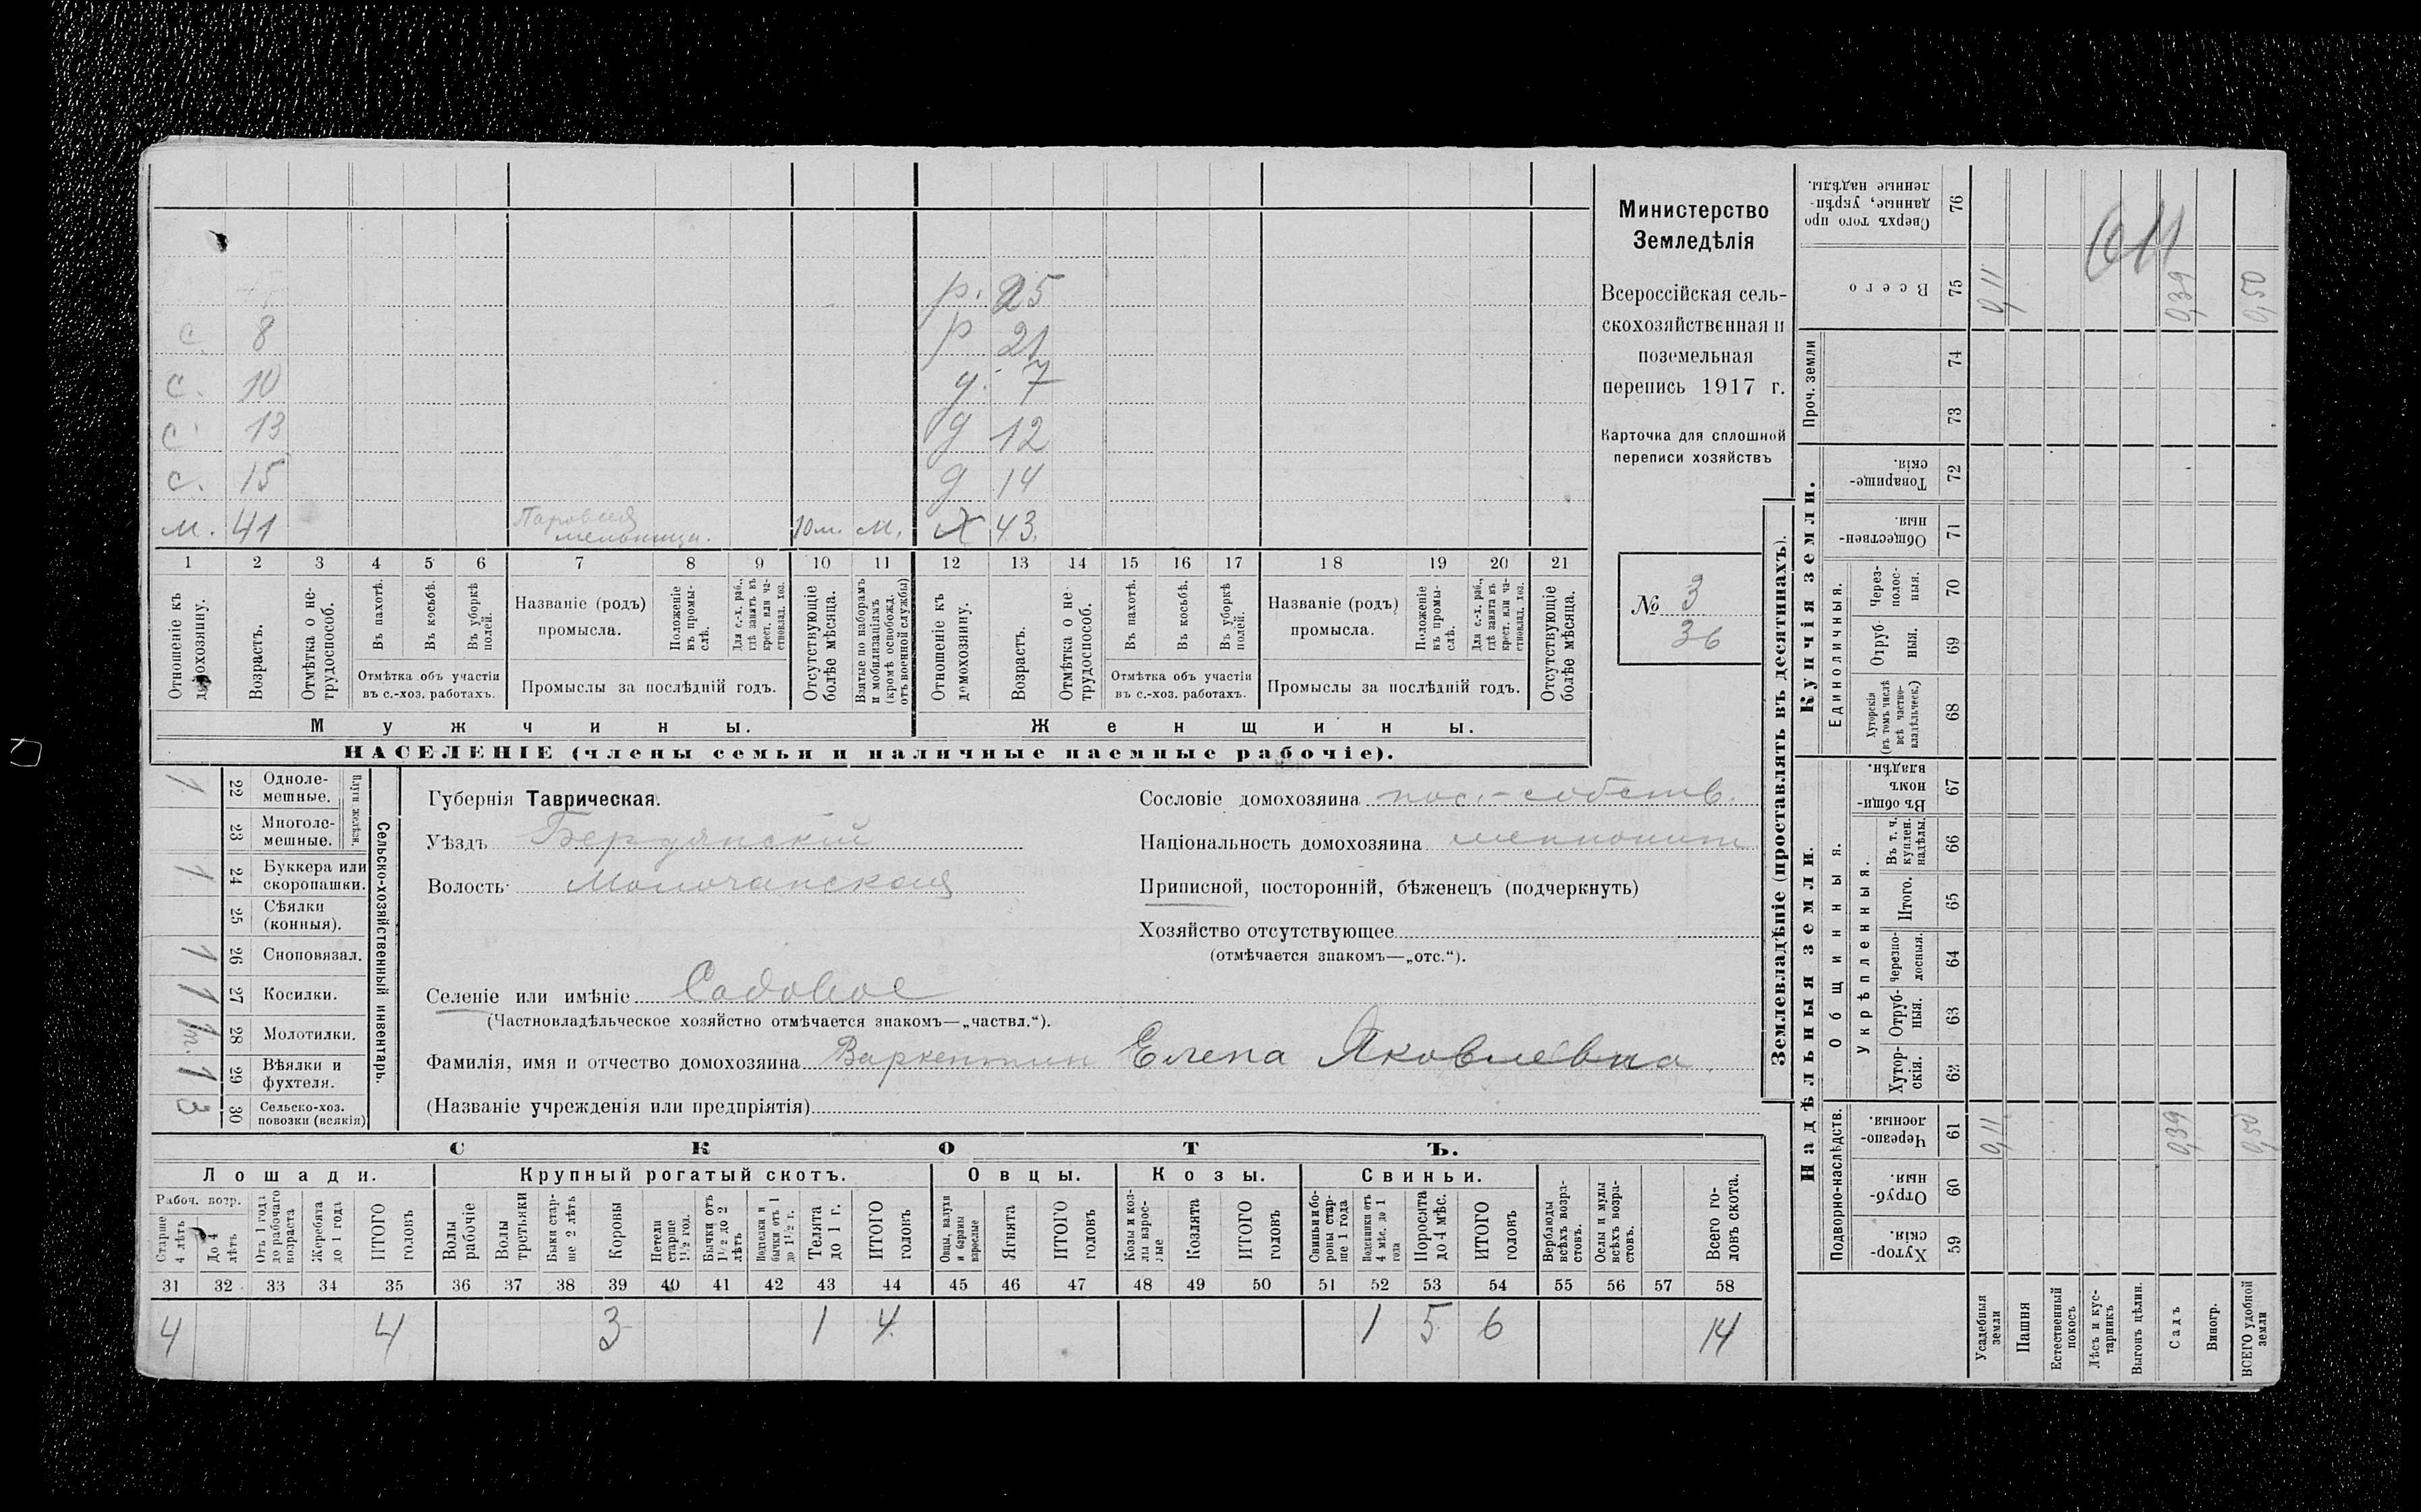 с. 8
с. 10
с. 13
с. 15
м. 41 Паровая мельница. 10 м. М.
р. 25
р 21
д. 7
д 12
д 14
Х 43.
1 2 3 4 5 6 7 8 9 10 11 12 13 14 15 16 17 18 19 20 21
Отношеніе къ домохозяину.
Возрастъ.
Отмѣтка о не-трудоспособ.
Въ пахотѣ.
Въ косьбѣ.
Въ уборкѣ полей.
Отмѣтка объ участіи въ с.-хоз. работахъ.
Названіе (родъ) промысла.
Положеніе въ промы-слѣ.
Для с.-х. раб., гдѣ занятъ въ крест. или ча-стновлад. хоз.
Промыслы за послѣдній годъ.
Отсутствующіе болѣе мѣсяца.
Взятые по наборамъ и мобилизаціямъ (кромѣ освобожд. отъ военной службы)
Отношеніе къ домохозяину.
Возрастъ.
Отмѣтка о не-трудоспособ.
Въ пахотѣ.
Въ косьбѣ.
Въ уборкѣ полей.
Отмѣтка объ участіи въ с.-хоз. работахъ.
Названіе (родъ) промысла.
Положеніе въ промы-слѣ.
Для с.-х. раб., гдѣ занята въ крест. или ча-стновлад. хоз.
Промыслы за послѣдній годъ.
Отсутствующіе болѣе мѣсяца.
Мужчины.
Женщины.
НАСЕЛЕНІЕ (члены семьи и наличные наемные рабочіе).
Министерство
Земледѣлія
Всероссійская сель-
скохозяйственная и
поземельная
перепись 1917 г.
Карточка для сплошной
переписи хозяйствъ
№ 3
36
1 22 Одноле-мешные.
23 Многоле-мешные.
Плуги желѣзн.
1 24 Буккера или скоропашки.
25 Сѣялки (конныя).
1 26 Сноповязал.
1 27 Косилки.
1 м. 28 Молотилки.
1 29 Вѣялки и фухтеля.
3 30 Сельско-хоз. повозки (всякія)
Сельско-хозяйственный инвентарь.
Губернія Таврическая.
Уѣздъ Бердянскій
Волость Молочанская
Селеніе или имѣніе Садовое
(Частновладѣльческое хозяйство отмѣчается знакомъ—„частвл.“).
Фамилія, имя и отчество домохозяина Варкентин Елена Яковлевна.
(Названіе учрежденія или предпріятія)
Сословіе домохозяина пос.-собств.
Національность домохозяина меннонит
Приписной, посторонній, бѣженецъ (подчеркнуть)
Хозяйство отсутствующее
(отмѣчается знакомъ—„отс.“).
СКОТЪ.
Лошади.
Крупный рогатый скотъ.
Овцы.
Козы.
Свиньи.
Рабоч. возр.
Старше 4 лѣтъ
До 4 лѣтъ
Отъ 1 года до рабочаго возраста
Жеребята до 1 года
ИТОГО головъ
Волы рабочіе
Волы третьяки
Быки стар-ше 2 лѣтъ
Коровы
Нетели старше 1½ год.
Бычки отъ 1½ до 2 лѣтъ
Подтелки и бычки отъ 1 до 1½ г.
Телята до 1 г.
ИТОГО головъ
Овцы, валухи и бараны взрослые
Ягнята
ИТОГО головъ
Козы и коз-лы взрос-лые
Козлята
ИТОГО головъ
Свиньи и бо-ровы стар-ше 1 года
Подсвинки отъ 4 мѣс. до 1 года
Поросята до 4 мѣс.
ИТОГО головъ
Верблюды всѣхъ возра-стовъ.
Ослы и мулы всѣхъ возра-стовъ.
Всего го-ловъ скота.
31 32 33 34 35 36 37 38 39 40 41 42 43 44 45 46 47 48 49 50 51 52 53 54 55 56 57 58
4 4 3 1 4 1 5 6 14
Землевладѣніе (проставлять въ десятинахъ).
Купчія земли.
Надѣльныя земли.
Сверхъ того про-данные, укрѣп-ленные надѣлы. 76
Всего 75
Проч. земли
74
73
Товарище-скія. 72
Обществен-ныя. 71
Единоличныя.
Через-полос-ныя. 70
Отруб-ныя. 69
Хуторскія (въ томъ числѣ всѣ частно-владѣльчес.) 68
Въ общи-номъ владѣн. 67
Общинныя.
Укрѣпленныя.
Въ т. ч. куплен. надѣлы. 66
Итого. 65
Черезпо-лосныя. 64
Отруб-ныя. 63
Хутор-скія. 62
Подворно-наслѣдств.
Черезпо-лосныя. 61
Отруб-ныя. 60
Хутор-скія. 59
Усадебныя земли
Пашня
Естественный покосъ
Лѣсъ и кус-тарникъ
Выгонъ цѣлин.
Садъ
Виногр.
ВСЕГО удобной земли
0,11 0,39 0,50
0,11 0,39 0,50